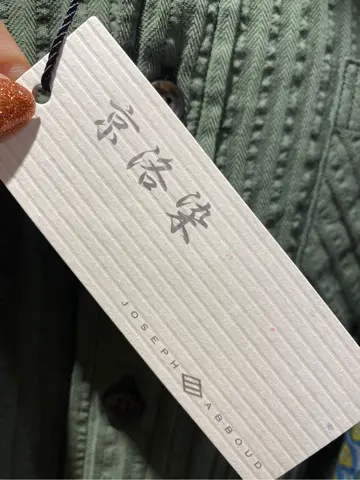 京洛染
JOSEPH ABBOUD